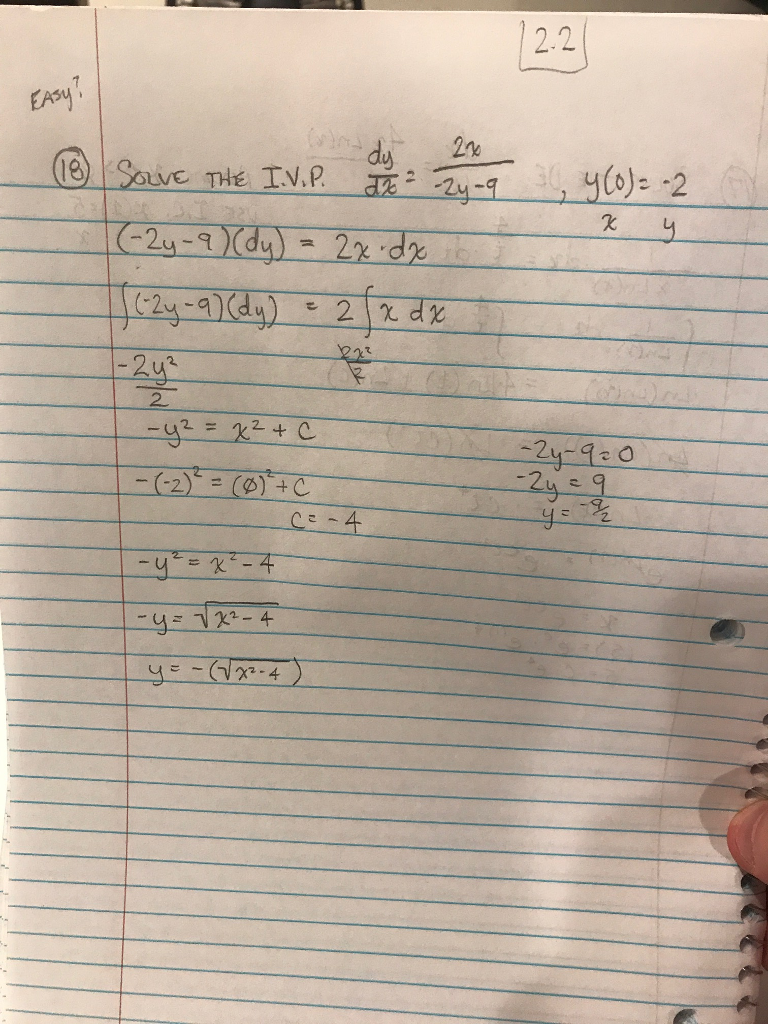 2.2
EASY?
18 SOLVE THE I.V.P. dy/dx = 2x/(-2y-9) , y(0) = -2
x y
(-2y-9)(dy) = 2x·dx
∫(-2y-9)(dy) = 2∫x dx
-2y²/2 2x²/2
-y² = x² + C
-(-2)² = (0)² + C
C = -4
-y² = x² - 4
-y = √(x² - 4)
y = -(√(x²-4))
-2y-9=0
-2y = 9
y = -9/2